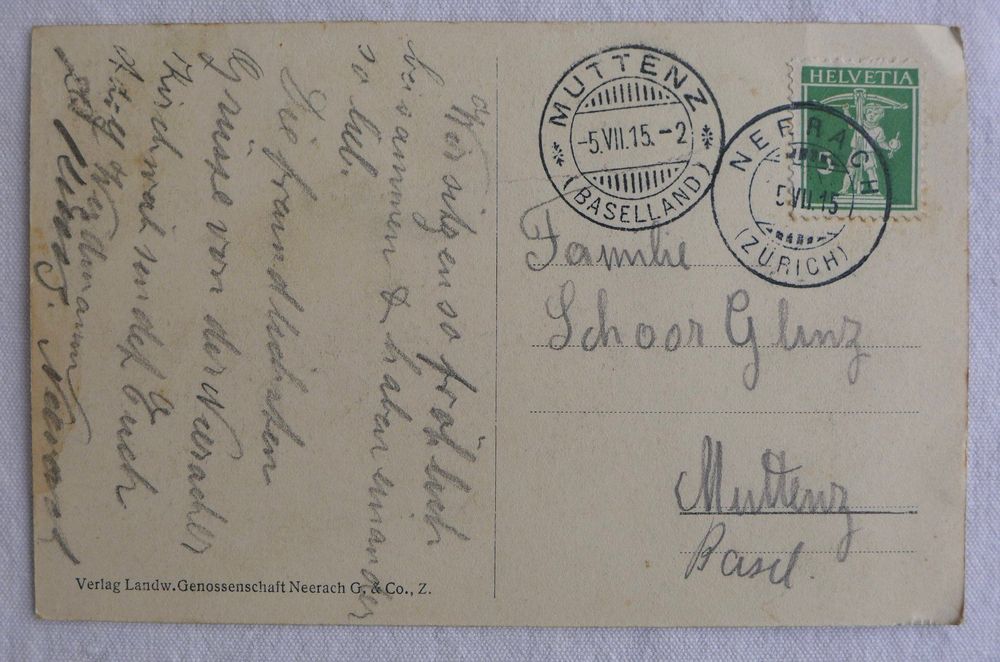 Wir sitzen so fröhlich
beisammen & haben einander
so lieb.
Die freundlichsten
Grüsse von der Neeracher
Kirchwei sendet Euch
Wellmann
Neerach
MUTTENZ
-5.VII.15.-2
(BASELLAND)
HELVETIA
5
NEERACH
5.VII.15
(ZÜRICH)
Familie
Schoor Glinz
Muttenz
Basel.
Verlag Landw. Genossenschaft Neerach G. & Co., Z.